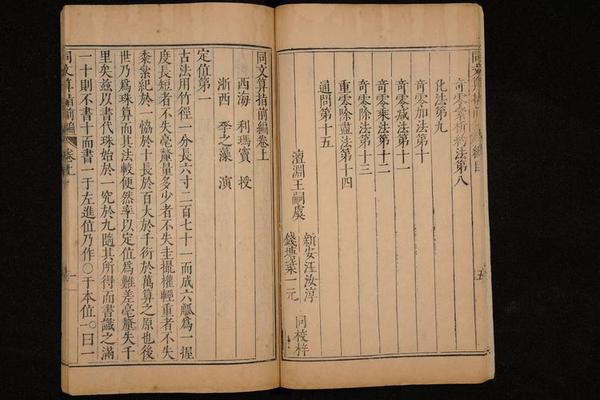 奇零累析約法第八
化法第九
奇零加法第十
奇零减法第十一
奇零乘法第十二
奇零除法第十三
重零除盡法第十四
通問第十五
澶淵王嗣虞
新安汪汝淳
錢塘葉一元
同校梓
五
同文算指前編卷上
西海 利瑪竇 授
浙西 李之藻 演
定位第一
古法用竹徑一分長六寸二百七十一而成六觚為一握
度長短者不失毫釐量多少者不失圭撮權輕重者不失
黍絫紀於一協於十長於百大於千衍於萬算之原也後
世乃為珠算而其法較便然率以定位為難差毫釐失千
里矣茲以書代珠始於一究於九隨其所得而書識之滿
一十則不書十而書一于左進位乃作〇于本位一〇曰一
同文算指前編
卷上
一